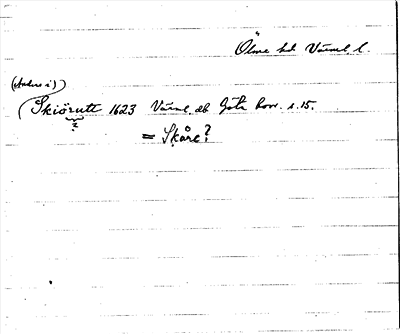 Ölme hd Värml. l.
(Anders i)
Skiörutt 1623 Värml. ab Göta hovr. s. 15.
?
= Skåre?